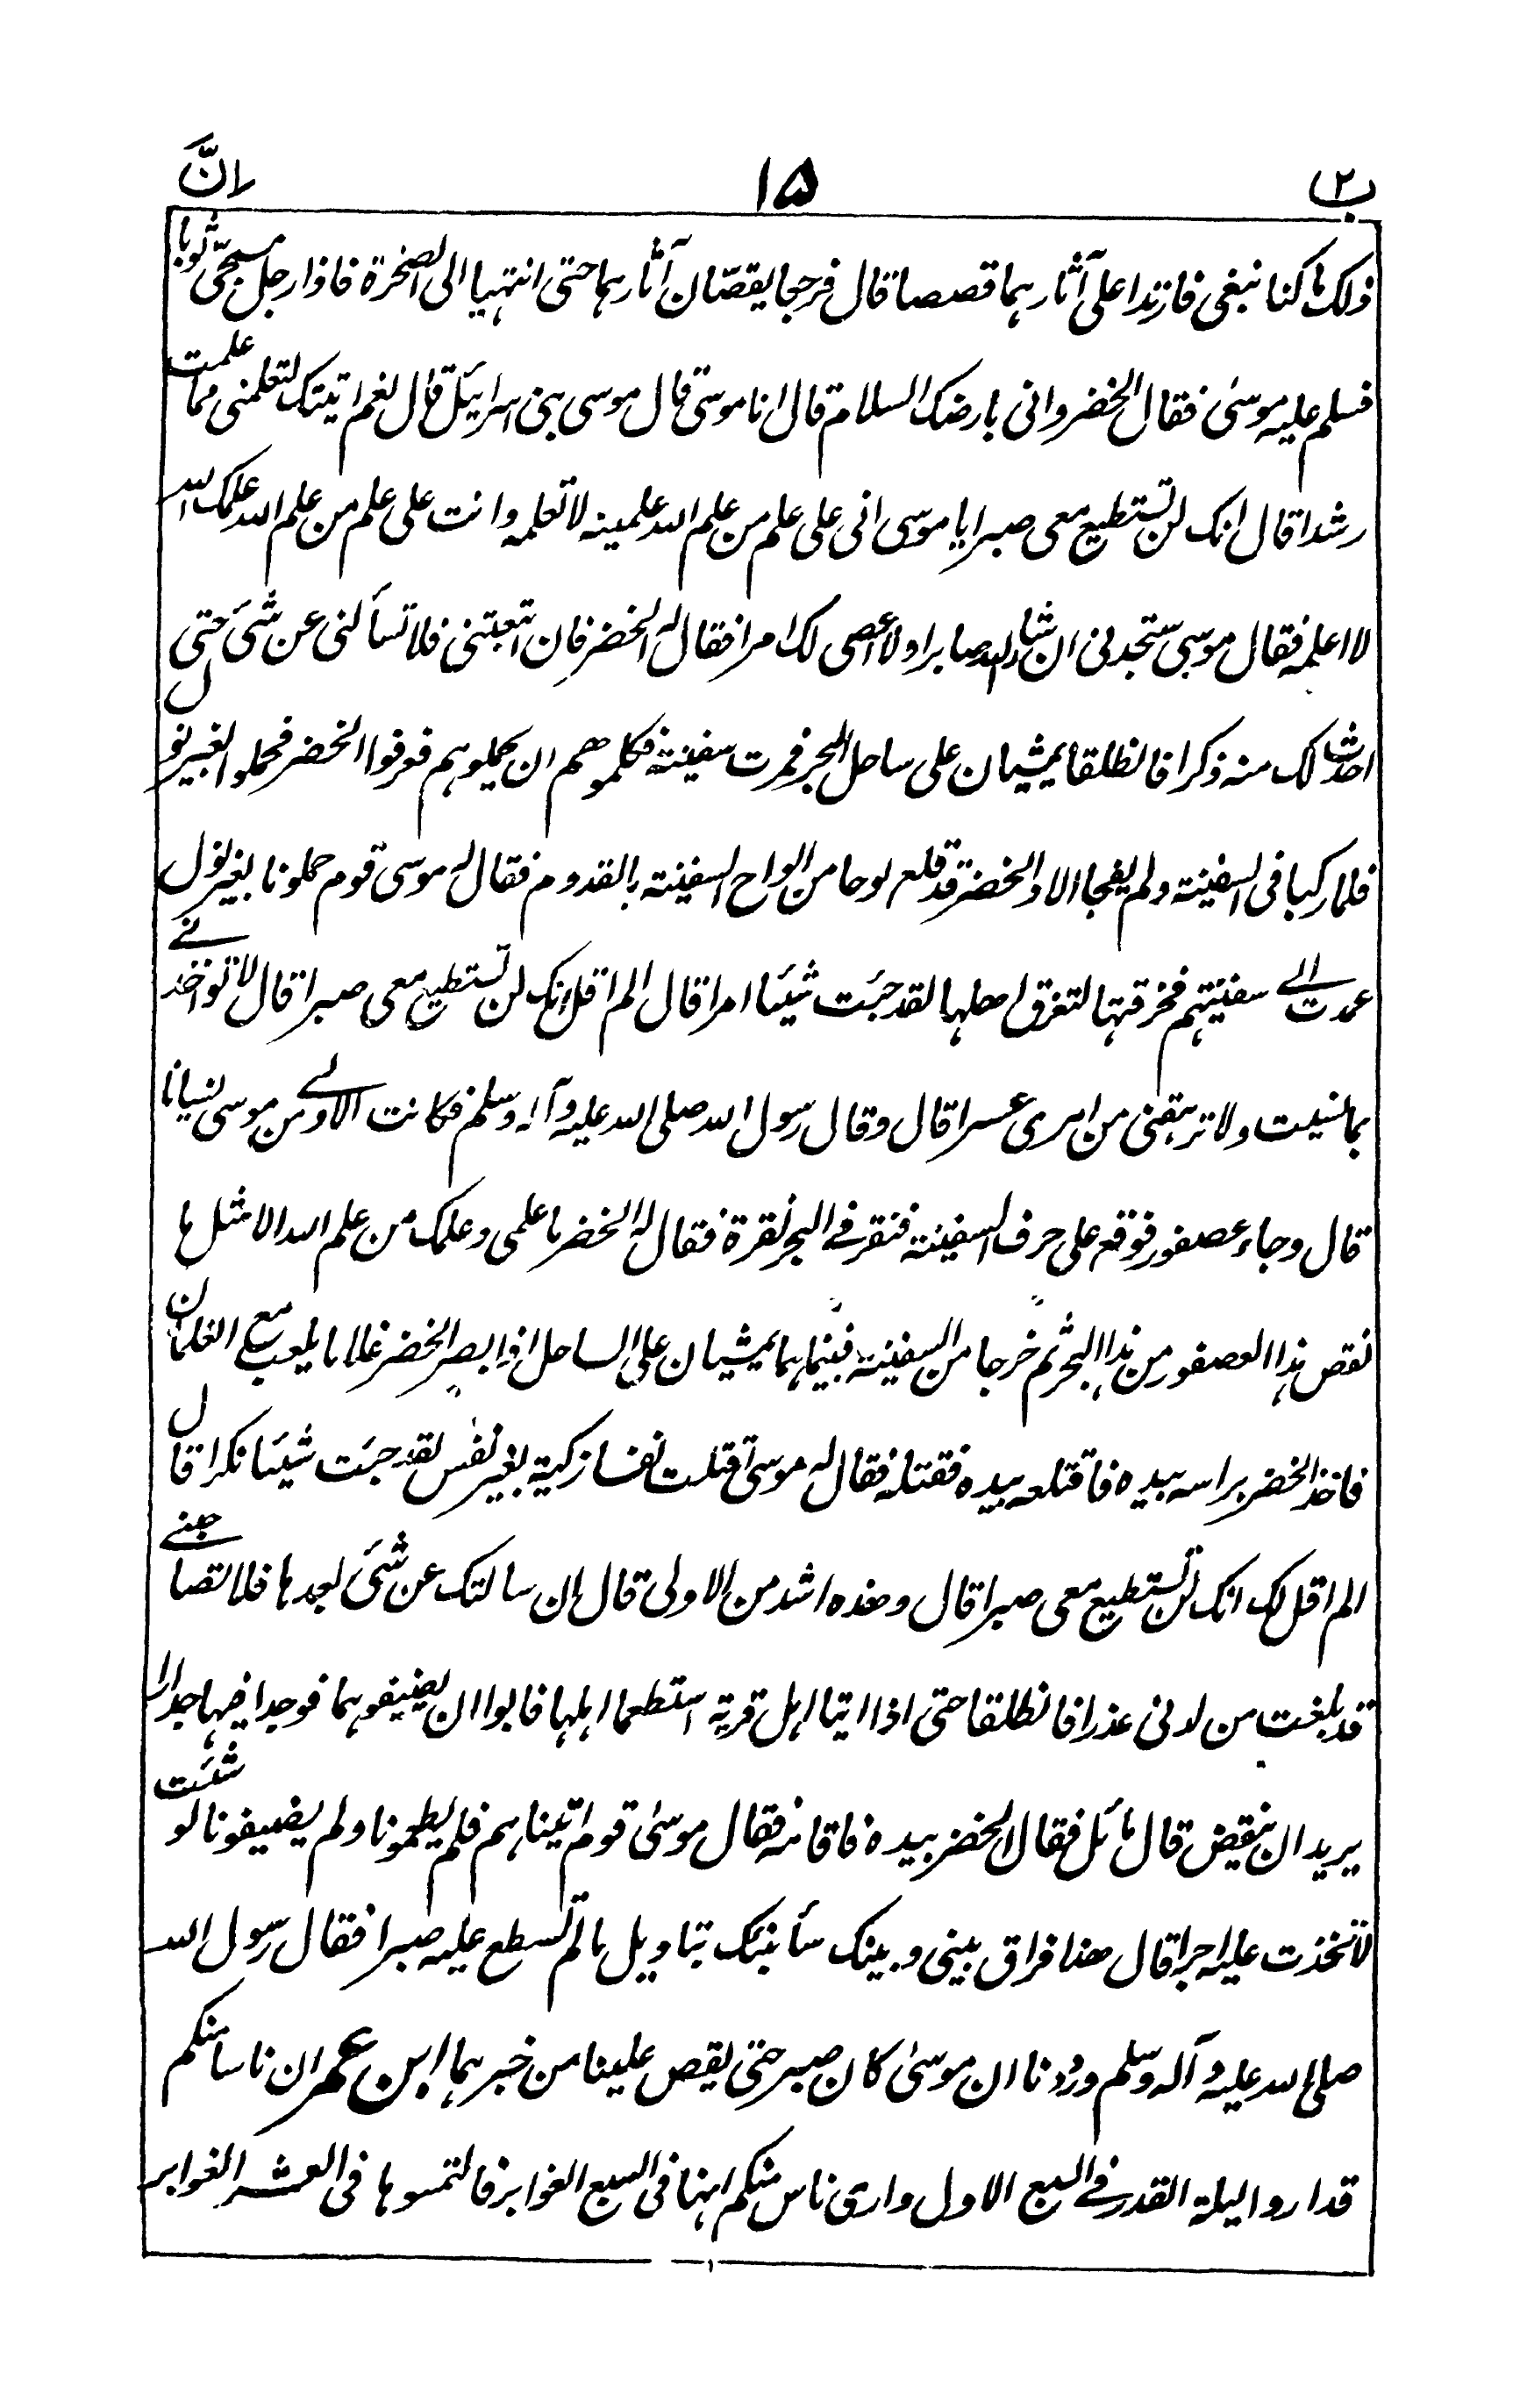 ب٢ ١۵ انَّ
ذلک ما کنا نبغی فارتدا علی آثارہما قصصا قال فرجعا یقصّان آثارہما حتی انتہیا الی الصخرۃ فاذا رجل مسجّی ثوبا
فسلم علیہ موسیٰ فقال الخضر وانی بارضک السلام قال انا موسیٰ قال موسی بنی اسرائیل قال نعم اتیتک لتعلمنی مما علمت
رشدا قال انک لن تستطیع معی صبرا یا موسی انی علی علم من علم اللہ علمینہ لا تعلمہ وانت علی علم من علم اللہ علمک اللہ
لا اعلمہ فقال موسی ستجدنی ان شاء اللہ صابرا ولا اعصی لک امرا فقال لہ الخضر فان اتبعتنی فلا تسألنی عن شئ حتی
احدث لک منہ ذکرا فانطلقا یمشیان علی ساحل البحر فمرت سفینۃ فکلموھم ان یحملوہم فعرفوا الخضر فحملوا بغیر نول
فلما رکبا فی السفینۃ ولم یفجا الا والخضر قد قلع لوحا من الواح السفینۃ بالقدوم فقال لہ موسی قوم حملونا بغیر نول
عمدت الی سفینتہم فخرقتہا لتغرق اھلہا لقد جئت شیئا امرا قال الم اقل انک لن تستطیع معی صبرا قال لا تواخذنی
بما نسیت ولا ترہقنی من امری عسرا قال وقال رسول اللہ صلی اللہ علیہ وآلہ وسلم فکانت الاولی من موسی نسیانا
قال وجاء عصفور فوقع علی حرف السفینۃ فنقر فی البحر نقرۃ فقال لہ الخضر ما علمی وعلمک من علم اللہ الا مثل ما
نقص ہذا العصفور من ہذا البحر ثم خرجا من السفینۃ فبینما ہما یمشیان علی الساحل اذ ابصر الخضر غلاما یلعب مع الغلمان
فاخذ الخضر براسہ بیدہ فاقتلعہ بیدہ فقتلہ فقال لہ موسیٰ اقتلت نفسا زکیۃ بغیر نفس لقد جئت شیئا نکرا قال
الم اقل لک انک لن تستطیع معی صبرا قال وھذہ اشد من الاولی قال ان سالتک عن شئ بعدہا فلا تصاحبنی
قد بلغت من لدنی عذرا فانطلقا حتی اذا اتیا اہل قریۃ استطعما اہلہا فابوا ان یضیفوہما فوجدا فیہا جدارا
یرید ان ینقض قال مائل فقال الخضر بیدہ فاقامہ فقال موسیٰ قوم اتیناہم فلم یطعمونا ولم یضیفونا لو شئت
لاتخذت علیہ اجرا قال ھذا فراق بینی وبینک سأنبئک بتاویل مالم تسطع علیہ صبرا فقال رسول اللہ
صلی اللہ علیہ وآلہ وسلم وددنا ان موسیٰ کان صبر حتی یقص علینا من خبرہما ابن عمر ان ناسا منکم
قد اروا لیلۃ القدر فی السبع الاول واری ناس منکم انہا فی السبع الغوابر فالتمسوہا فی العشر الغوابر